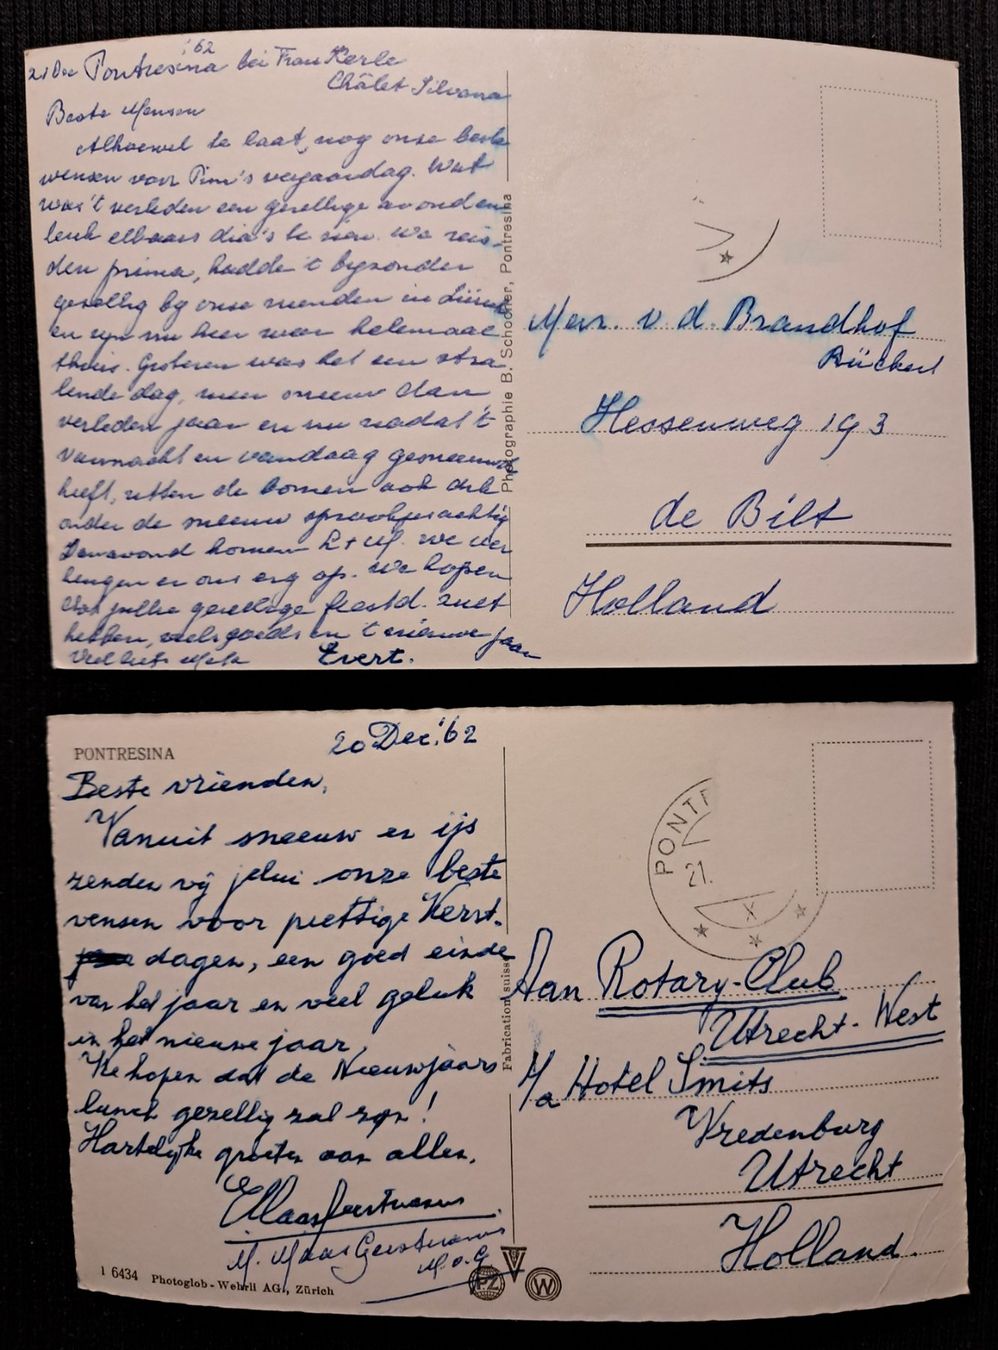 '62
21 Dec Pontresina bei Frau Kerle
Châlet Silvana
Beste Mensen
Alhoewel te laat, nog onze beste
wensen voor Pim's verjaardag. Wat
was 't verleden een gezellige avond en
leuk elkaars dia's te zien. We reis-
den prima, hadden 't byzonder
gezellig by onze vrienden in
en zyn nu hier weer helemaal
thuis. Gisteren was het een stra-
lende dag, meer sneeuw dan
verleden jaar en nu nadat 't
vannacht en vandaag gesneeuwd
heeft, zitten de bomen ook dik
onder de sneeuw sprookjesachtig
Vanavond komen R + M. We ver
heugen er ons erg op. We hopen
dat jullie gezellige feestd. zult
hebben, veels goeds in 't nieuwe jaar
Veel liefs Evert.
Photographie B. Schocher, Pontresina
v. d. Brandhof
Bückert
Hessenweg 193
de Bilt
Holland
PONTRESINA
20 Dec. '62
Beste vrienden,
Vanuit sneeuw en ijs
zenden wij jelui onze beste
wensen voor prettige Kerst-
dagen, een goed einde
van het jaar en veel geluk
in het nieuwe jaar.
We hopen dat de Nieuwjaars
lunch gezellig zal zijn!
Hartelijke groeten aan allen,
M. Maas Geesteranus
M. v. G
1 6434 Photoglob-Wehrli AG., Zürich
Fabrication suisse
PZ
W
PONTR
21.
X
Aan Rotary-Club
Utrecht-West
p/a Hotel Smits
Vredenburg
Utrecht
Holland.